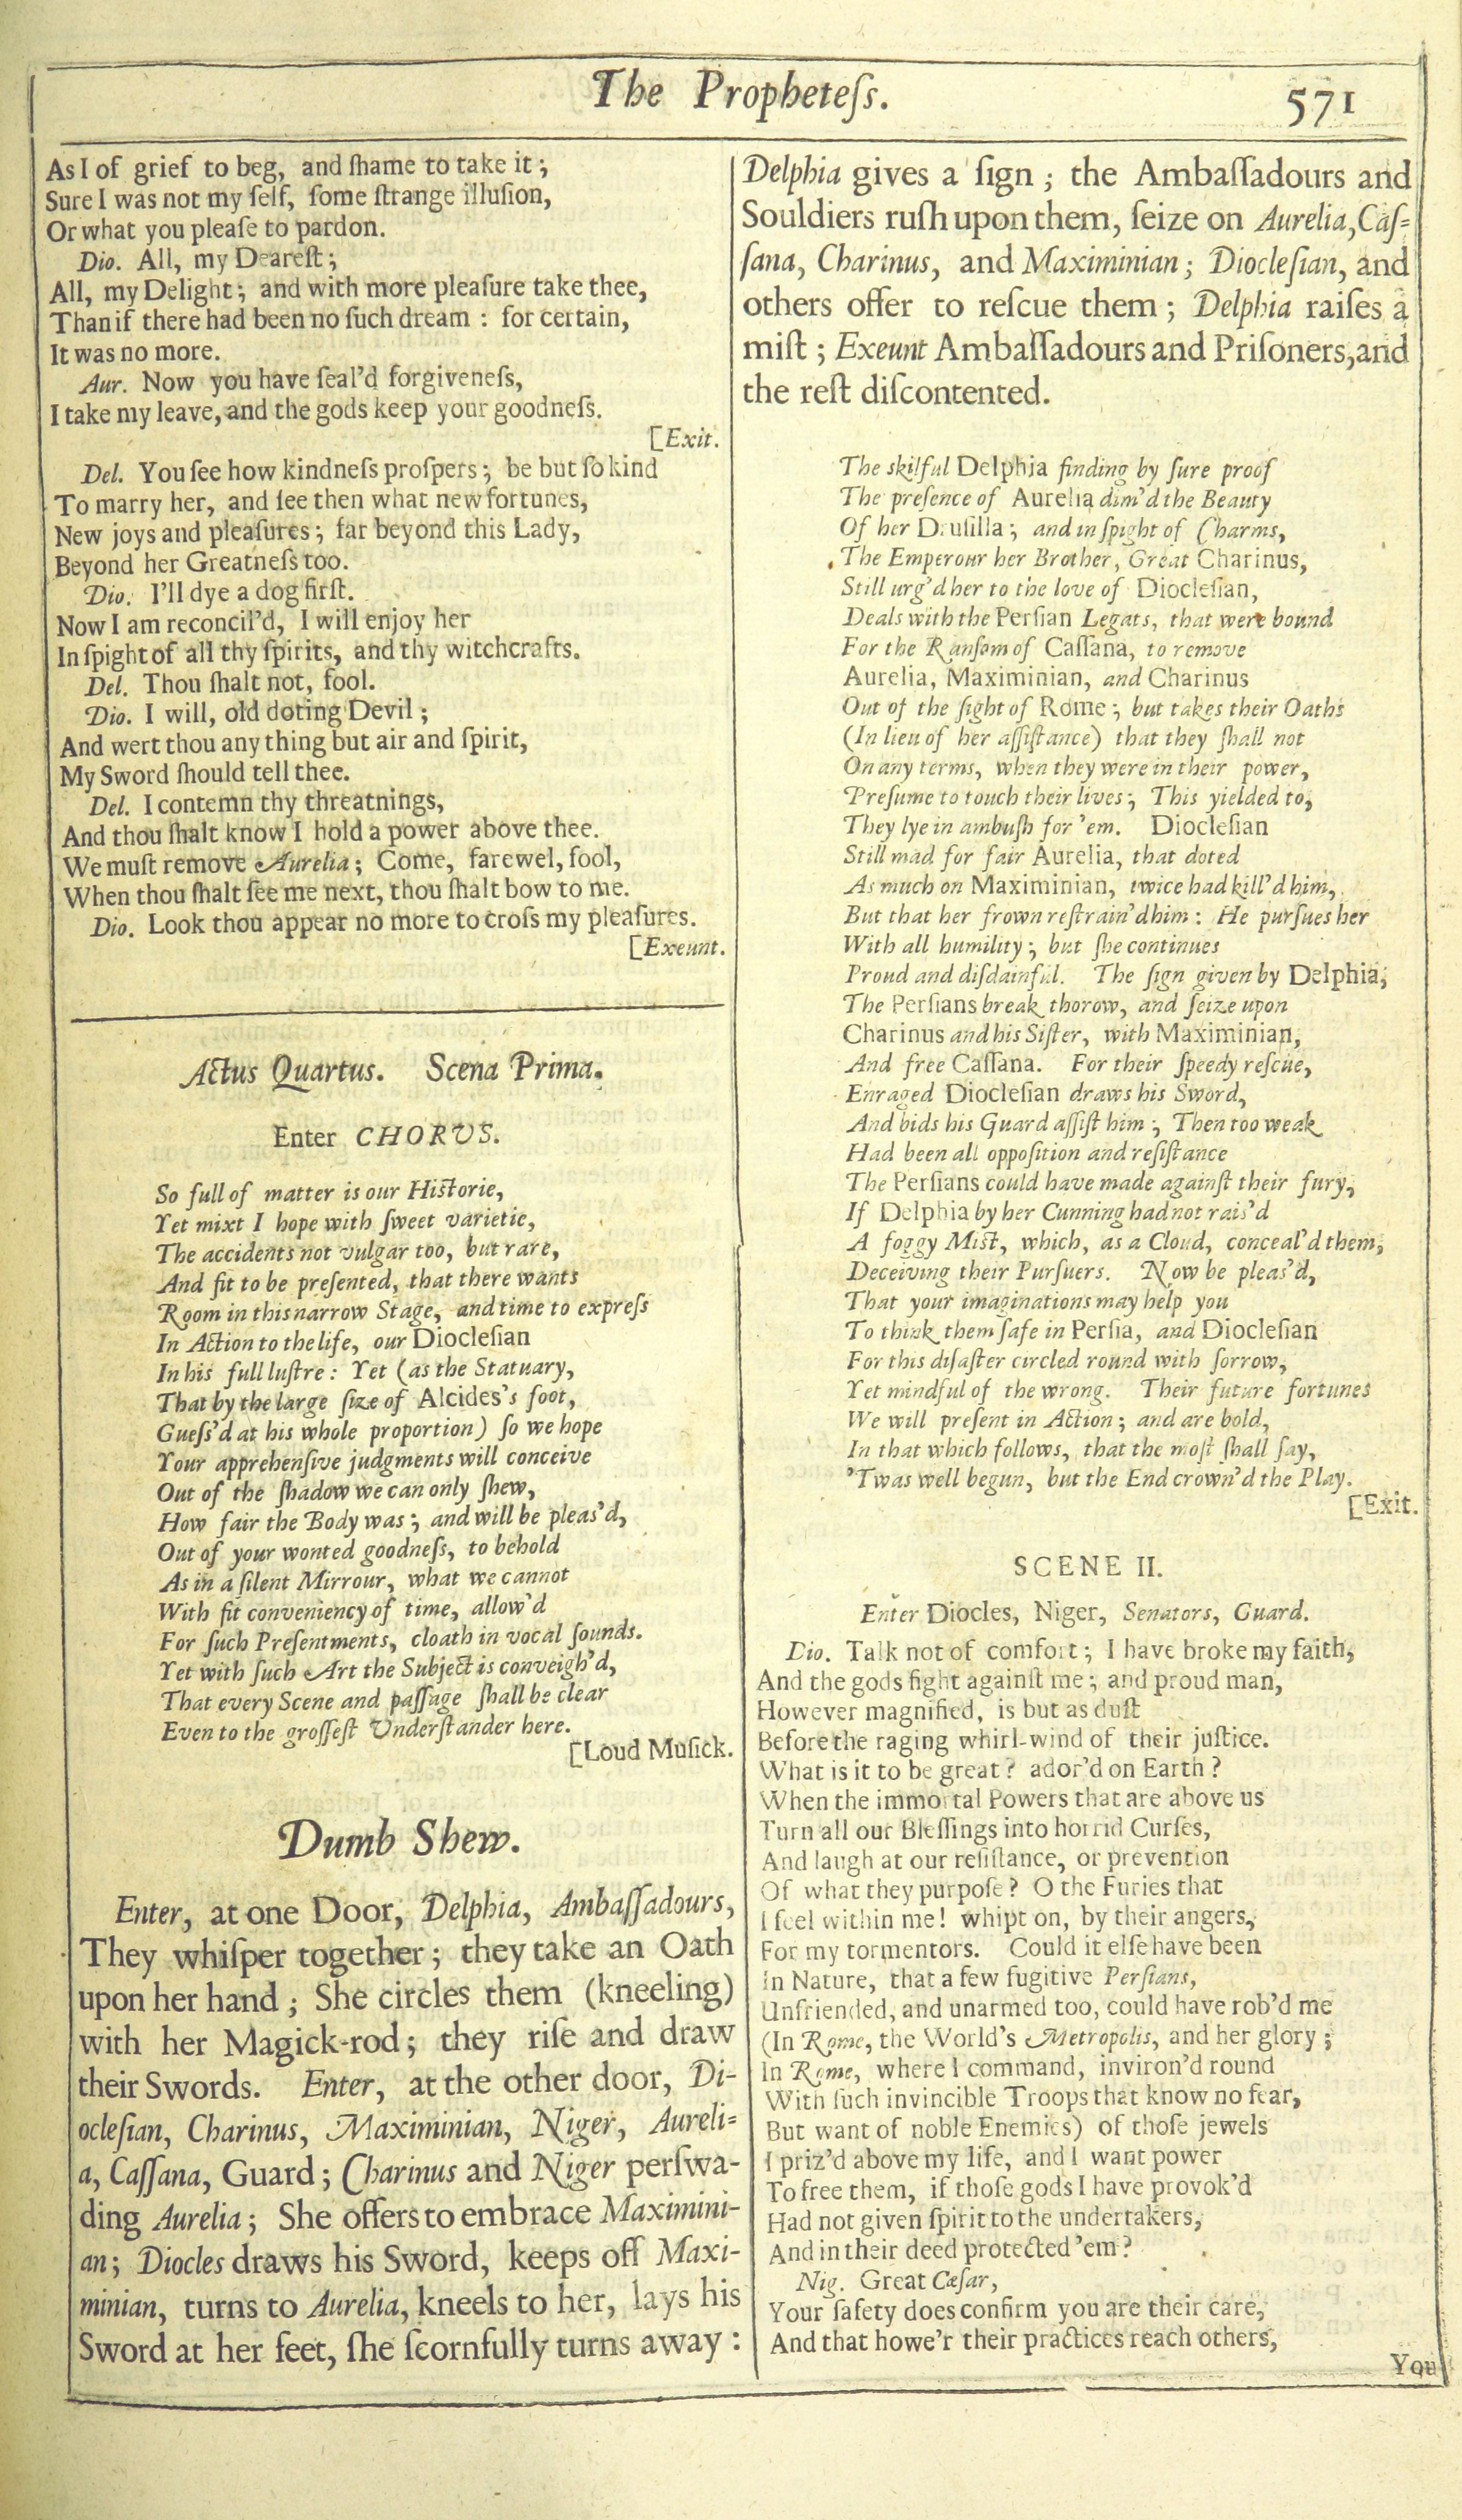 The Propheteſs.
571
As I of grief to beg, and ſhame to take it;
Sure I was not my ſelf, ſome ſtrange illuſion,
Or what you pleaſe to pardon.
Dio. All, my Deareſt;
All, my Delight; and with more pleaſure take thee,
Than if there had been no ſuch dream : for certain,
It was no more.
Aur. Now you have ſeal'd forgiveneſs,
I take my leave, and the gods keep your goodneſs.
[Exit.
Del. You ſee how kindneſs proſpers; be but ſo kind
To marry her, and ſee then what new fortunes,
New joys and pleaſures; far beyond this Lady,
Beyond her Greatneſs too.
Dio. I'll dye a dog firſt.
Now I am reconcil'd, I will enjoy her
In ſpight of all thy ſpirits, and thy witchcrafts.
Del. Thou ſhalt not, fool.
Dio. I will, old doting Devil;
And wert thou any thing but air and ſpirit,
My Sword ſhould tell thee.
Del. I contemn thy threatnings,
And thou ſhalt know I hold a power above thee.
We muſt remove Aurelia; Come, farewel, fool,
When thou ſhalt ſee me next, thou ſhalt bow to me.
Dio. Look thou appear no more to croſs my pleaſures.
[Exeunt.
Actus Quartus. Scena Prima.
Enter CHORUS.
So full of matter is our Hiſtorie,
Yet mixt I hope with ſweet varietie,
The accidents not vulgar too, but rare,
And fit to be preſented, that there wants
Room in this narrow Stage, and time to expreſs
In Action to the life, our Diocleſian
In his full luſtre: Yet (as the Statuary,
That by the large ſize of Alcides's foot,
Gueſs'd at his whole proportion) ſo we hope
Your apprehenſive judgments will conceive
Out of the ſhadow we can only ſhew,
How fair the Body was; and will be pleas'd,
Out of your wonted goodneſs, to behold
As in a ſilent Mirrour, what we cannot
With fit conveniency of time, allow'd
For ſuch Preſentments, cloath in vocal ſounds.
Yet with ſuch Art the Subject is conveigh'd,
That every Scene and paſſage ſhall be clear
Even to the groſſeſt Underſtander here.
[Loud Muſick.
Dumb Shew.
Enter, at one Door, Delphia, Ambaſſadours,
They whiſper together; they take an Oath
upon her hand; She circles them (kneeling)
with her Magick-rod; they riſe and draw
their Swords. Enter, at the other door, Di-
ocleſian, Charinus, Maximinian, Niger, Aureli-
a, Caſſana, Guard; Charinus and Niger perſwa-
ding Aurelia; She offers to embrace Maximini-
an; Diocles draws his Sword, keeps off Maxi-
minian, turns to Aurelia, kneels to her, lays his
Sword at her feet, ſhe ſcornfully turns away:
Delphia gives a ſign; the Ambaſſadours and
Souldiers ruſh upon them, ſeize on Aurelia, Caſ-
ſana, Charinus, and Maximinian; Diocleſian, and
others offer to reſcue them; Delphia raiſes a
miſt; Exeunt Ambaſſadours and Priſoners, and
the reſt diſcontented.
The skilful Delphia finding by ſure proof
The preſence of Aurelia dim'd the Beauty
Of her Druſilla; and in ſpight of Charms,
The Emperour her Brother, Great Charinus,
Still urg'd her to the love of Diocleſian,
Deals with the Perſian Legats, that were bound
For the Ranſom of Caſſana, to remove
Aurelia, Maximinian, and Charinus
Out of the ſight of Rome; but takes their Oaths
(In lieu of her aſſiſtance) that they ſhall not
On any terms, when they were in their power,
Preſume to touch their lives; This yielded to,
They lye in ambuſh for 'em. Diocleſian
Still mad for fair Aurelia, that doted
As much on Maximinian, twice had kill'd him,
But that her frown reſtrain'd him: He purſues her
With all humility; but ſhe continues
Proud and diſdainful. The ſign given by Delphia,
The Perſians break thorow, and ſeize upon
Charinus and his Siſter, with Maximinian,
And free Caſſana. For their ſpeedy reſcue,
Enraged Diocleſian draws his Sword,
And bids his Guard aſſiſt him; Then too weak
Had been all oppoſition and reſiſtance
The Perſians could have made againſt their fury,
If Delphia by her Cunning had not rais'd
A foggy Miſt, which, as a Cloud, conceal'd them,
Deceiving their Purſuers. Now be pleas'd,
That your imaginations may help you
To think them ſafe in Perſia, and Diocleſian
For this diſaſter circled round with ſorrow,
Yet mindful of the wrong. Their future fortunes
We will preſent in Action; and are bold,
In that which follows, that the moſt ſhall ſay,
'Twas well begun, but the End crown'd the Play.
[Exit.
SCENE II.
Enter Diocles, Niger, Senators, Guard.
Dio. Talk not of comfort; I have broke my faith,
And the gods fight againſt me; and proud man,
However magnified, is but as duſt
Before the raging whirl-wind of their juſtice.
What is it to be great? ador'd on Earth?
When the immortal Powers that are above us
Turn all our Bleſſings into horrid Curſes,
And laugh at our reſiſtance, or prevention
Of what they purpoſe? O the Furies that
I feel within me! whipt on, by their angers,
For my tormentors. Could it elſe have been
In Nature, that a few fugitive Perſians,
Unfriended, and unarmed too, could have rob'd me
(In Rome, the World's Metropolis, and her glory;
In Rome, where I command, inviron'd round
With ſuch invincible Troops that know no fear,
But want of noble Enemies) of thoſe jewels
I priz'd above my life, and I want power
To free them, if thoſe gods I have provok'd
Had not given ſpirit to the undertakers,
And in their deed protected 'em?
Nig. Great Cæſar,
Your ſafety does confirm you are their care,
And that howe'r their practices reach others,
You